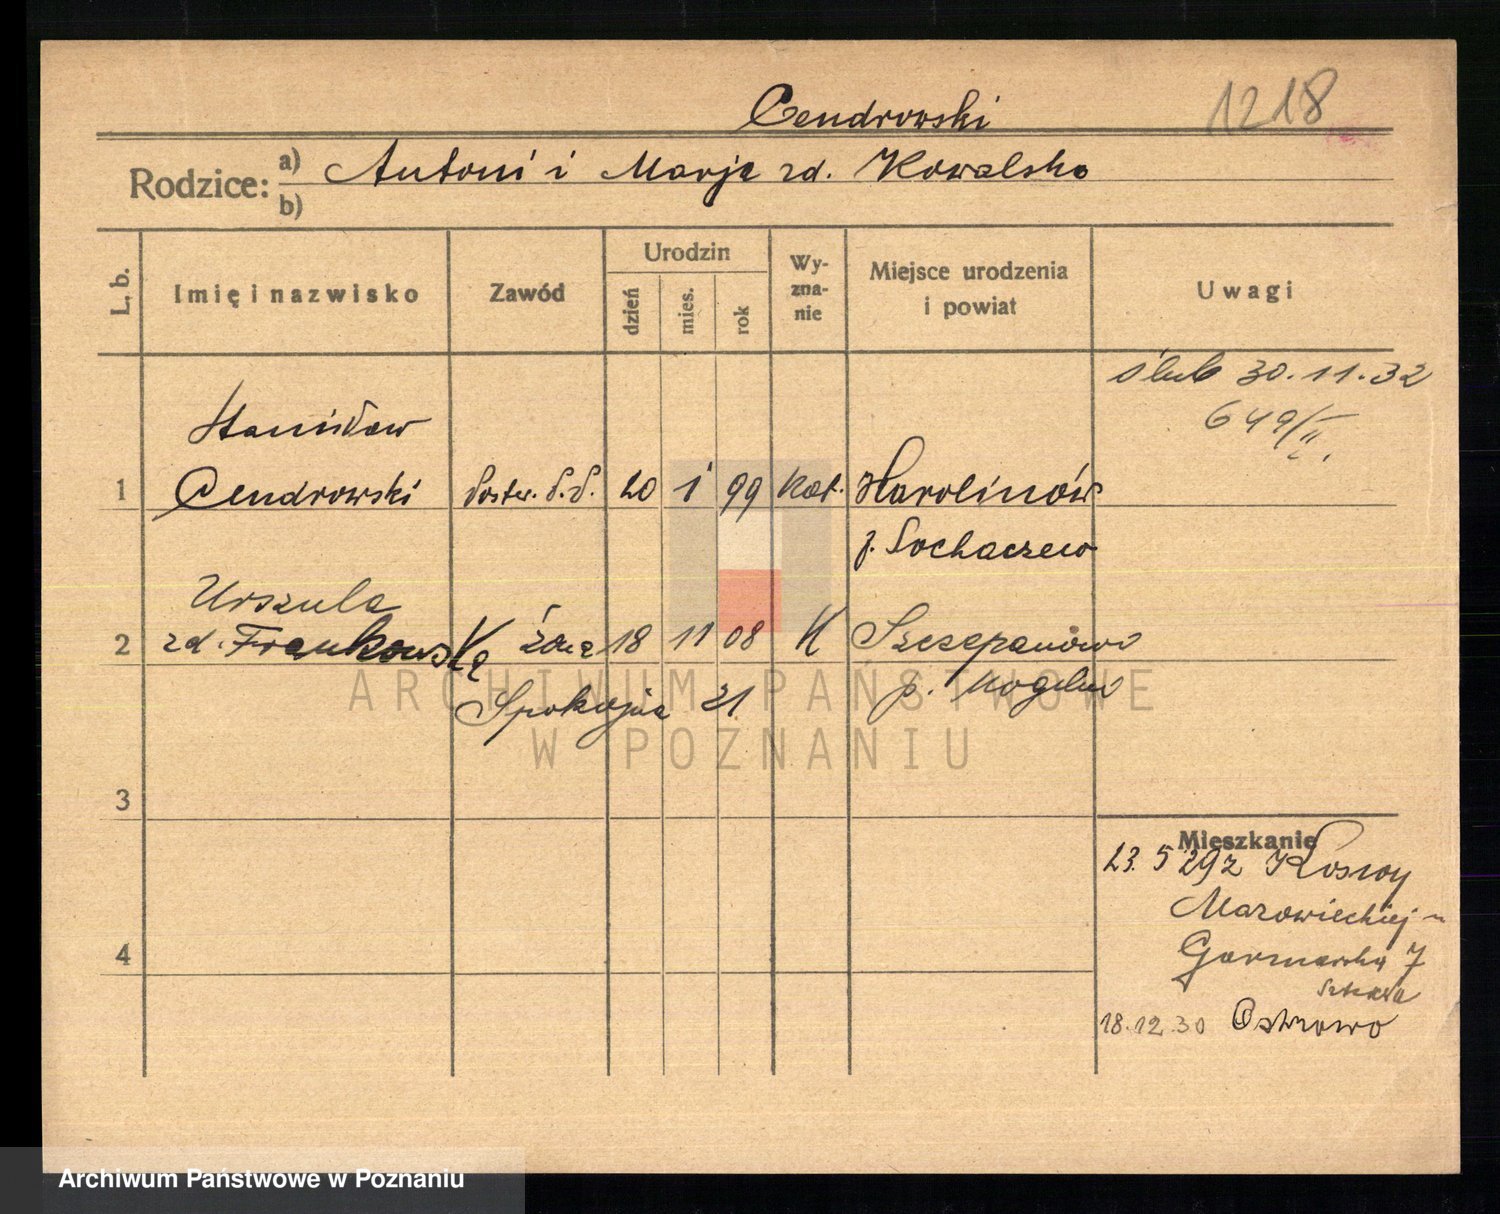 Cendrowski
1218
Rodzice: a) Antoni i Marja zd. Kowalska
b)
L. b.
Imię i nazwisko
Zawód
Urodzin
dzień
mies.
rok
Wy-
zna-
nie
Miejsce urodzenia
i powiat
Uwagi
ślub 30.11.32
649/II
Stanisław
1 Cendrowski 20 1 99 kat. Karolinów
p. Sochaczew
Urszula
2 zd. Frankowska żona 18 11 08 K Szczepanowo
Spokojna 21 p. Mogilno
3
Mieszkanie
23. 5 29 z
Mazowieckiej
4
7
18.12.30 Ostrowo
ARCHIWUM PAŃSTWOWE
W POZNANIU
Archiwum Państwowe w Poznaniu